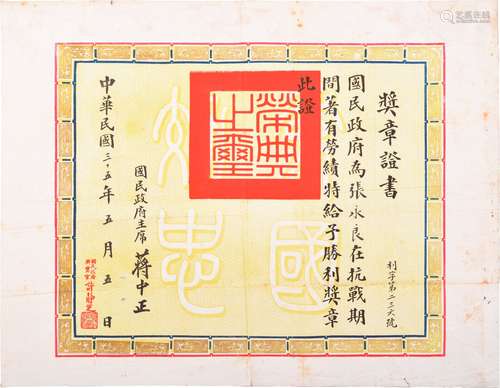 獎章證書
國民政府為張永良在抗戰期
間著有勞績特給予勝利獎章
此證
利字第二三六號
榮典之璽
國民政府主席 蔣中正
中華民國三十五年五月五日